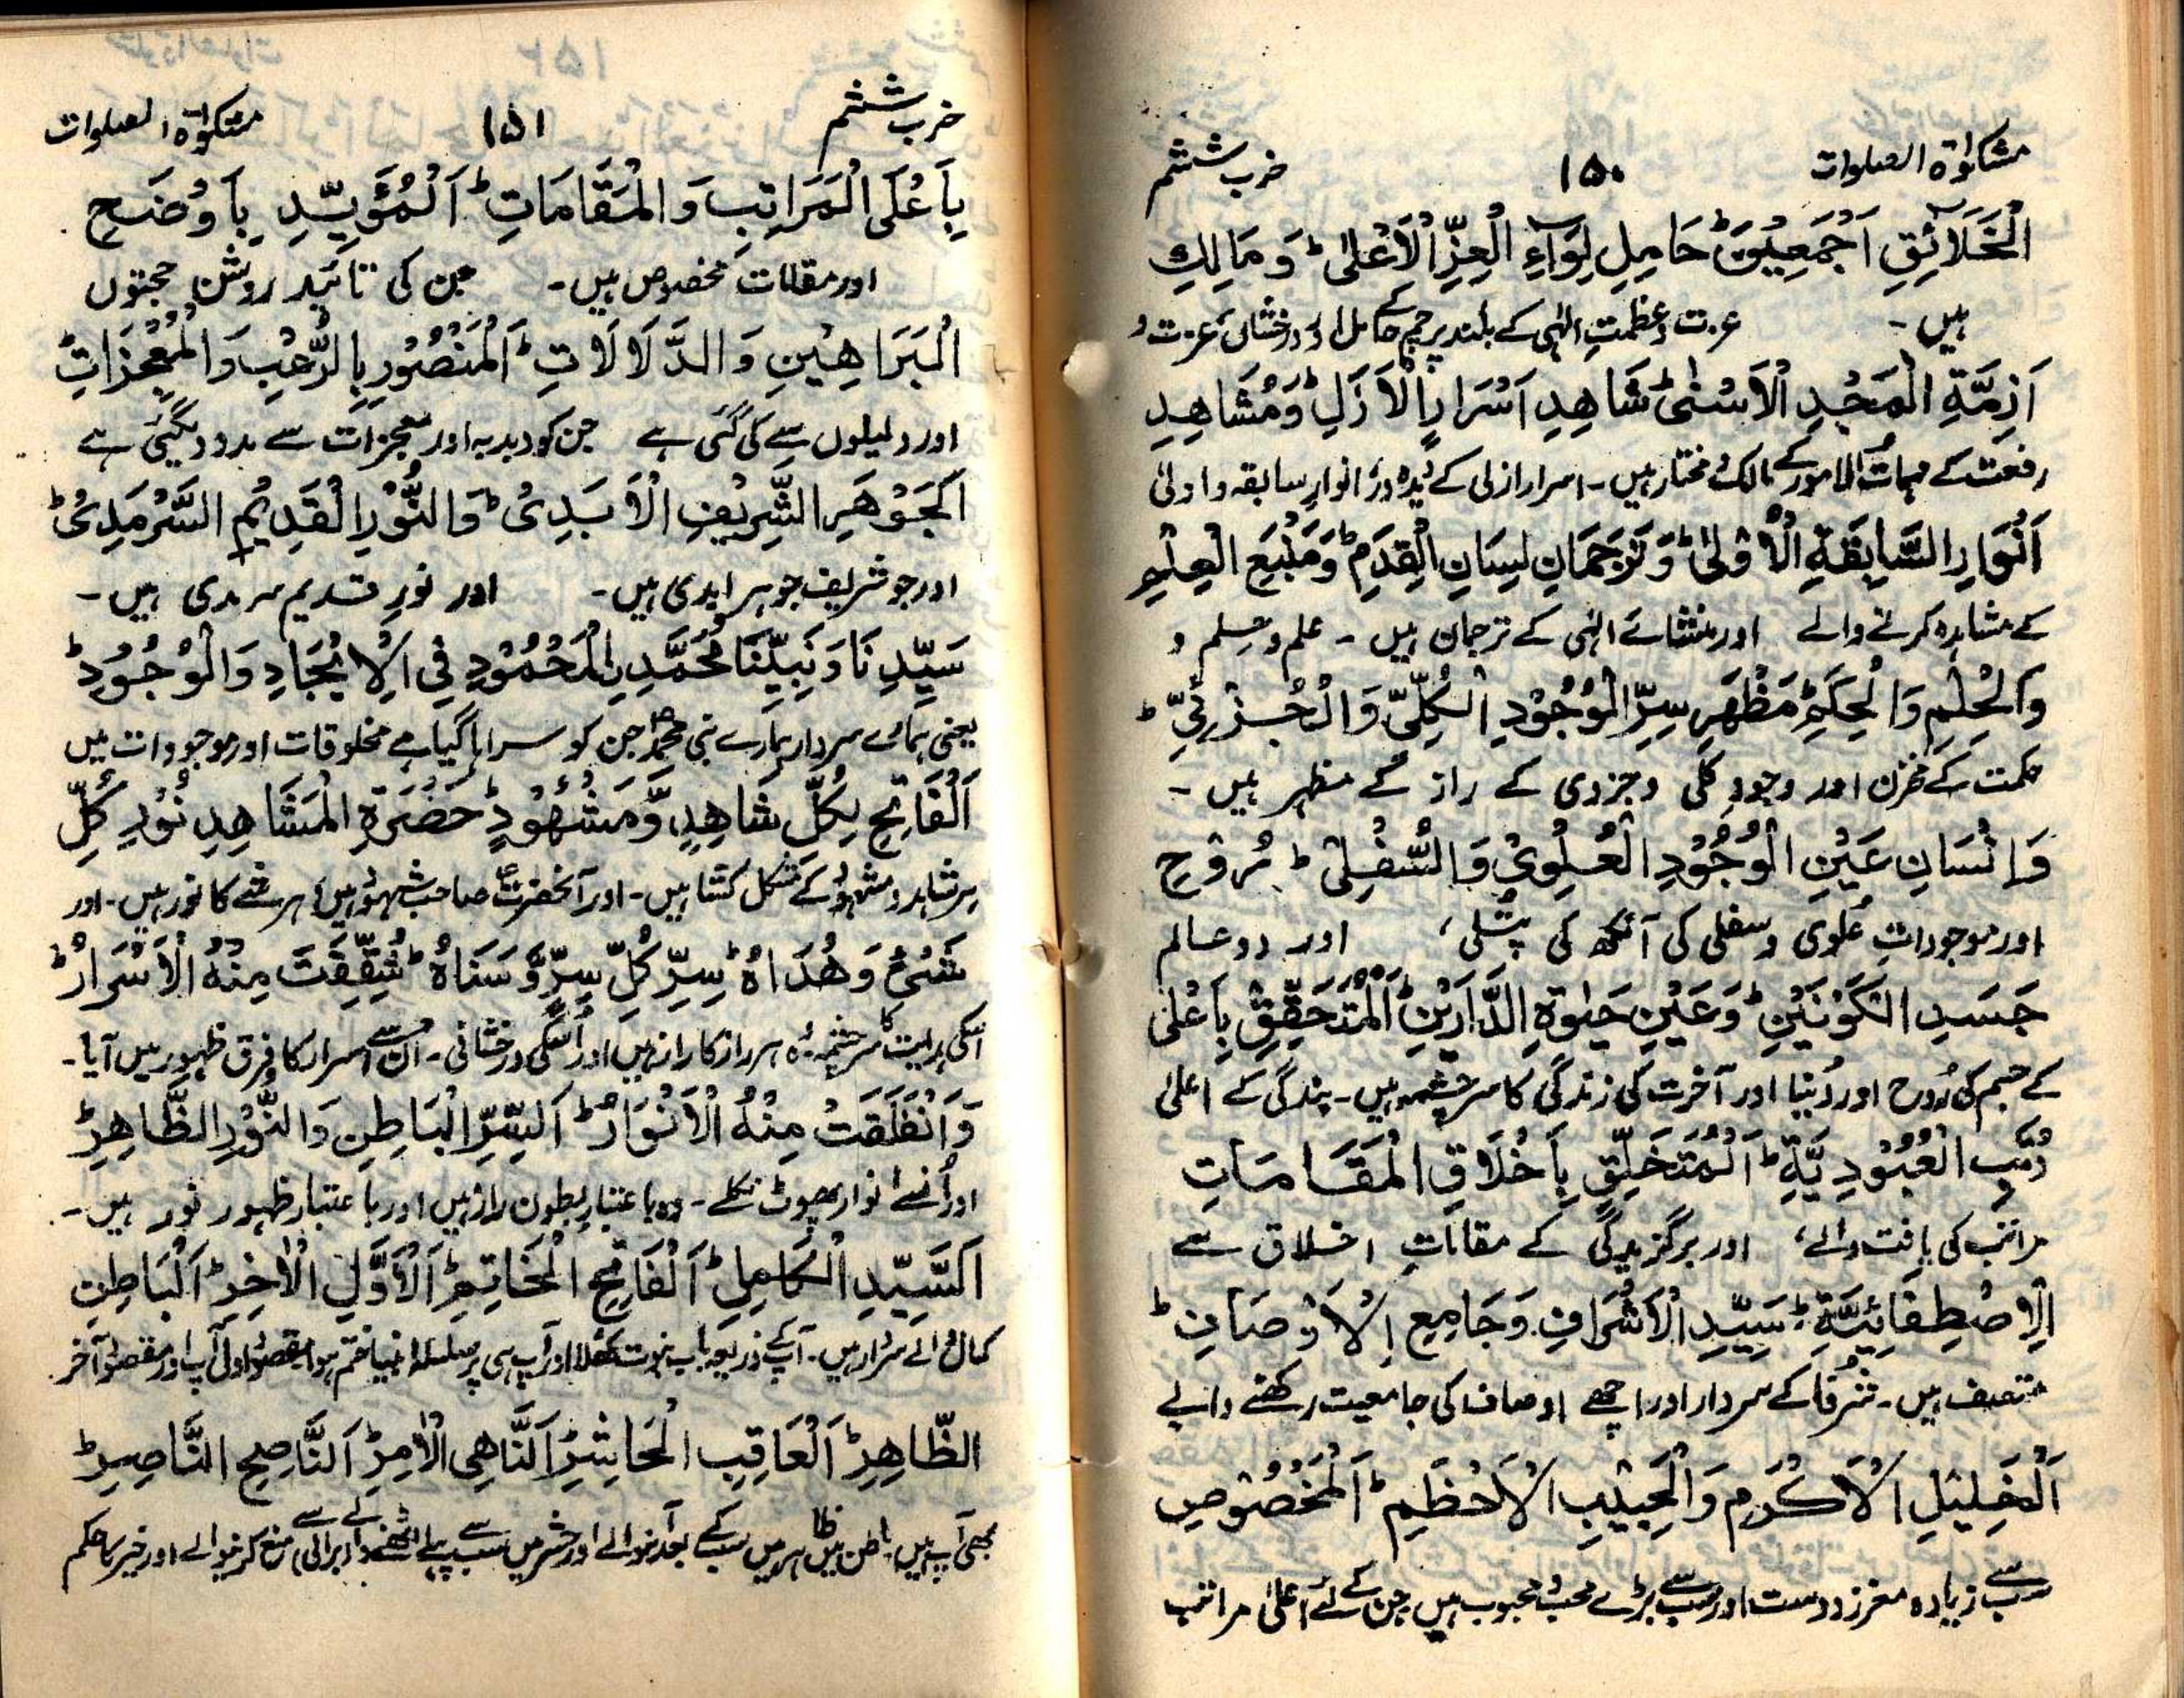 مشکوٰۃ الصلوات ۱۵۰ حزب ششم
الْخَلَائِقِ اَجْمَعِیْنَ ؕ حَامِلِ لِوَآءِ الْعِزِّ الْاَعْلٰی ؕ وَ مَالِكِ
ہیں ۔ عزت و عظمتِ الٰہی کے بلند پرچم کے حامل اور درخشاں عزت و
اَزِمَّةِ الْمَجْدِ الْاَسْنٰی ؕ شَاهِدِ اَسْرَارِ الْاَزَلِ ؕ وَ مُشَاهِدِ
رفعت کے مہمات الامور کے مالک مختار ہیں ۔ اسرار ازلی کے انوارِ سابقہ و اولیٰ
اَنْوَارِ السَّابِقَةِ الْاُوْلٰی ؕ وَ تَرْجَمَانِ لِسَانِ الْقِدَمِ ؕ وَ مَنْبَعِ الْعِلْمِ
کے مشاہدہ کرنے والے اور منشائے الٰہی کے ترجمان ہیں ۔ علم و حلم و
وَ الْحِلْمِ وَ الْحِكَمِ ؕ مَظْهَرِ سِرِّ الْوُجُوْدِ الْكُلِّيِّ وَ الْجُزْئِيِّ ؕ
حکمت کے مخزن اور وجودِ کلی و جزوی کے راز کے مظہر ہیں ۔
وَ اِنْسَانِ عَیْنِ الْوُجُوْدِ الْعُلْوِیِّ وَ السُّفْلِیِّ ؕ رُوْحِ
اور موجوداتِ علوی و سفلی کی آنکھ کی پُتلی، اور دو عالم
جَسَدِ الْكَوْنَیْنِ ؕ وَ عَیْنِ حَیٰوةِ الدَّارَیْنِ ؕ اَلْمُتَحَقِّقِ بِاَعْلٰی
کے جسم کی رُوح اور دُنیا اور آخرت کی زندگی کا سرچشمہ ہیں ۔ بندگی کے اعلیٰ
رُتَبِ الْعُبُوْدِیَّةِ ؕ اَلْمُتَخَلِّقِ بِاَخْلَاقِ الْمَقَامَاتِ
مراتب کی یافت والے، اور برگزیدگی کے مقاماتِ اخلاق سے
الْاِصْطِفَائِیَّةِ ؕ سَیِّدِ الْاَشْرَافِ وَ جَامِعِ الْاَوْصَافِ ؕ
متصف ہیں ۔ شُرفا کے سردار اور اچھے اوصاف کی جامعیت رکھنے والے
اَلْخَلِیْلِ الْاَكْرَمِ وَ الْحَبِیْبِ الْاَعْظَمِ ؕ اَلْمَخْصُوْصِ
سب سے زیادہ معزز دوست اور سب سے بڑے محب و محبوب ہیں جن کے لئے اعلیٰ مراتب
حزب ششم ۱۵۱ مشکوٰۃ الصلوات
بِاَعْلَی الْمَرَاتِبِ وَ الْمَقَامَاتِ ؕ اَلْمُؤَیَّدِ بِاَوْضَحِ
اور مقامات مخصوص ہیں ۔ جن کی تائید روشن حجتوں
الْبَرَاهِیْنِ وَ الدَّلَالَاتِ ؕ اَلْمَنْصُوْرِ بِالرُّعْبِ وَ الْمُعْجِزَاتِ ؕ
اور دلیلوں سے کی گئی ہے جن کو دبدبہ اور معجزات سے مدد دی گئی ہے
اَلْجَوْهَرِ الشَّرِیْفِ الْاَبَدِیِّ ؕ وَ النُّوْرِ الْقَدِیْمِ السَّرْمَدِیِّ ؕ
اور جو شریف جوہر ابدی ہیں ۔ اور نورِ قدیم سرمدی ہیں ۔
سَیِّدِنَا وَ نَبِیِّنَا مُحَمَّدِ الْمَحْمُوْدِ فِی الْاِیْجَادِ وَ الْوُجُوْدِ ؕ
یعنی ہمارے سردار ہمارے نبی محمدؐ جن کو سراہا گیا ہے مخلوقات اور موجودات میں
اَلْفَاتِحِ لِكُلِّ شَاهِدٍ وَّ مَشْهُوْدٍ ؕ حَضْرَةِ الْمَشَاهِدِ نُوْرِ كُلِّ
ہر شاہد و مشہود کے مشکل کشا ہیں ۔ اور آنحضرتؐ صاحب شہود ہیں، ہر شے کا نور ہیں ۔ اور
شَیْءٍ وَ هُدَاهُ ؕ سِرِّ كُلِّ سِرٍّ وَّ سَنَاهُ ؕ شُقِّقَتْ مِنْهُ الْاَسْرَارُ ؕ
اسکی ہدایت کا سرچشمہ ۔ ہر راز کا راز ہیں اور اُسکی درخشانی ۔ اُن سے اسرار کا فرق ظہور میں آیا ۔
وَ انْفَلَقَتْ مِنْهُ الْاَنْوَارُ ؕ اَلسِّرِّ الْبَاطِنِ وَ النُّوْرِ الظَّاهِرِ ؕ
اور اُنسے انوار پھوٹ نکلے ۔ وہ باعتبار بطون راز ہیں اور باعتبار ظہور نور ہیں ۔
اَلسَّیِّدِ الْكَامِلِ ؕ اَلْفَاتِحِ الْخَاتِمِ ؕ اَلْاَوَّلِ الْاٰخِرِ ؕ اَلْبَاطِنِ
کمال والے سردار ہیں ۔ آپ کے ذریعہ باب نبوت کھلا اور آپ ہی پر سلسلہ انبیا ختم ہوا مقصود اول آپ اور مقصود آخر
الظَّاهِرِ ؕ اَلْعَاقِبِ الْحَاشِرِ ؕ اَلنَّاهِی الْاٰمِرِ ؕ اَلنَّاصِحِ النَّاصِرِ ؕ
بھی آپ ہیں باطن ہیں ظاہر ہیں سب کے بعد آنیوالے اور حشر میں سب سے پہلے اٹھنے والے برائی سے منع کرنیوالے اور خیر کا حکم